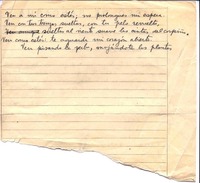 Ven a mí como estés; no prolongues mi espera.
Ven con tus largos sueltos, con tu pelo revuelto,
suelta al viento suave las cintas, del corpiño,
Ven como estés: te aguarda mi corazón abierto.
Ven pisando la yerba, mojándote las plantas